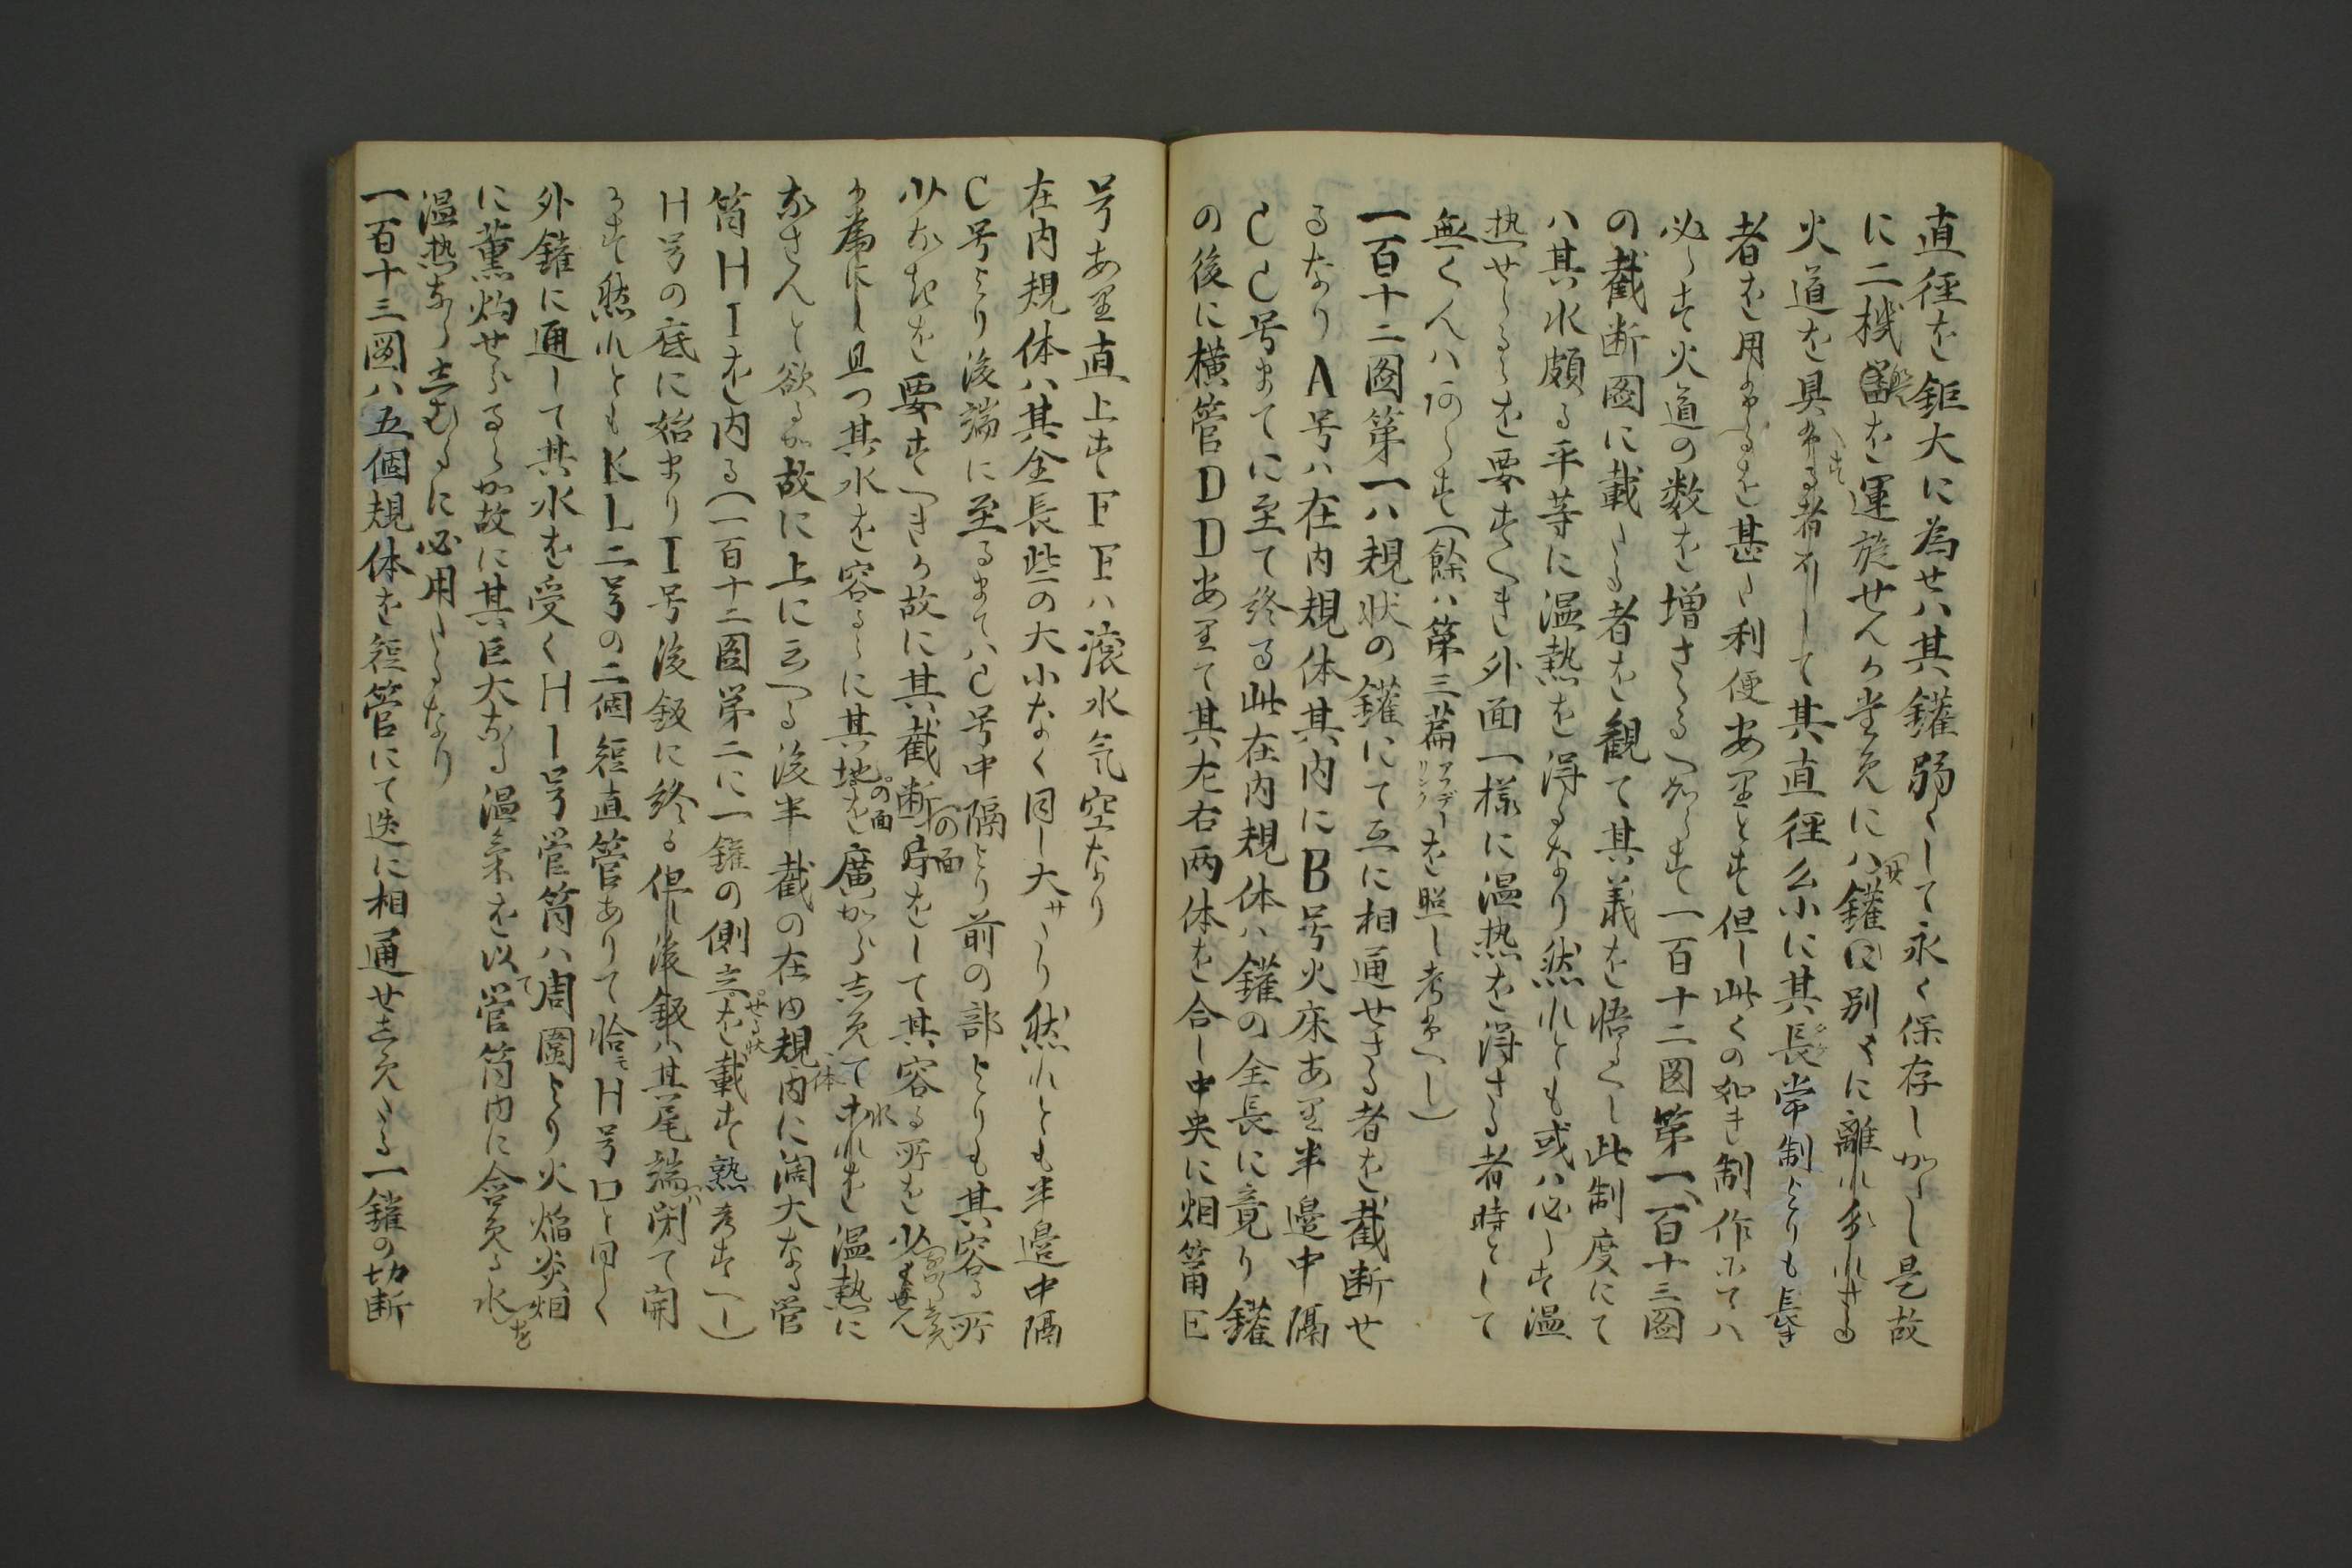 直径を鉅大に為せハ其鑵弱くして永く保存しかたし是故
に二機器を運旋せんか為めにハ鑵に別々に離れ
火道を具ふる者にして其直径公小に其長常制よりも長き
者を用ふるを甚た利便ありとす但し此くの如き制作にてハ
必らす火道の数を増さゝるへからす一百十二図第一一百十三図
の截断図に載たる者を観て其義を悟るへし此制度にて
ハ其水頗る平等に温熱を得るなり然れとも或ハ必らす温
熱せらるゝを要すへき外面一様に温熱を得さる者時として
無くんハあらす(餘ハ第三篇を照し考ふへし)
一百十二図第一ハ規状の鑵にて互に相通せさる者を截断せ
るなりA号ハ在内規体其内にB号火床あり半邉中隔
CC号まてに至て終る此在内規体ハ鑵の全長に竟り鑵
の後に横管DDありて其左右両体を合し中央に烟筩E
号あり直上すFFハ滾水気空なり
在内規体ハ其全長些の大小なく同し大サなり然れとも半邉中隔
C号より後端に至るまてハC号中隔より前の部よりも其容る所
少なきを要すへきか故に其截断の面をして其容る所を少
か為にし且つ其水を容るゝに其地の面を廣からしめて水を温熱に
なさんと欲るか故に上に云へる後半截の在内規体内に濶大なる管
筒HIを内る(一百十二図第二に一鑵の側立せる状を載す熟考すへし)
H号の底に始まりI号後鈑に終る但し後鈑ハ其尾端ハ閉て開
かす然れともKL二号の二個径直管ありて恰モH号口と同しく
外鑵に通して其水を受くHI号管筒ハ周圍より火焔炎烟
に薫灼せらるゝか故に其巨大なる温気を以て管筒内に含める水を
温熱ならしむるに必用たるなり
一百十三図ハ五個規体を径管にて迭に相通せしめたる一鑵の切断